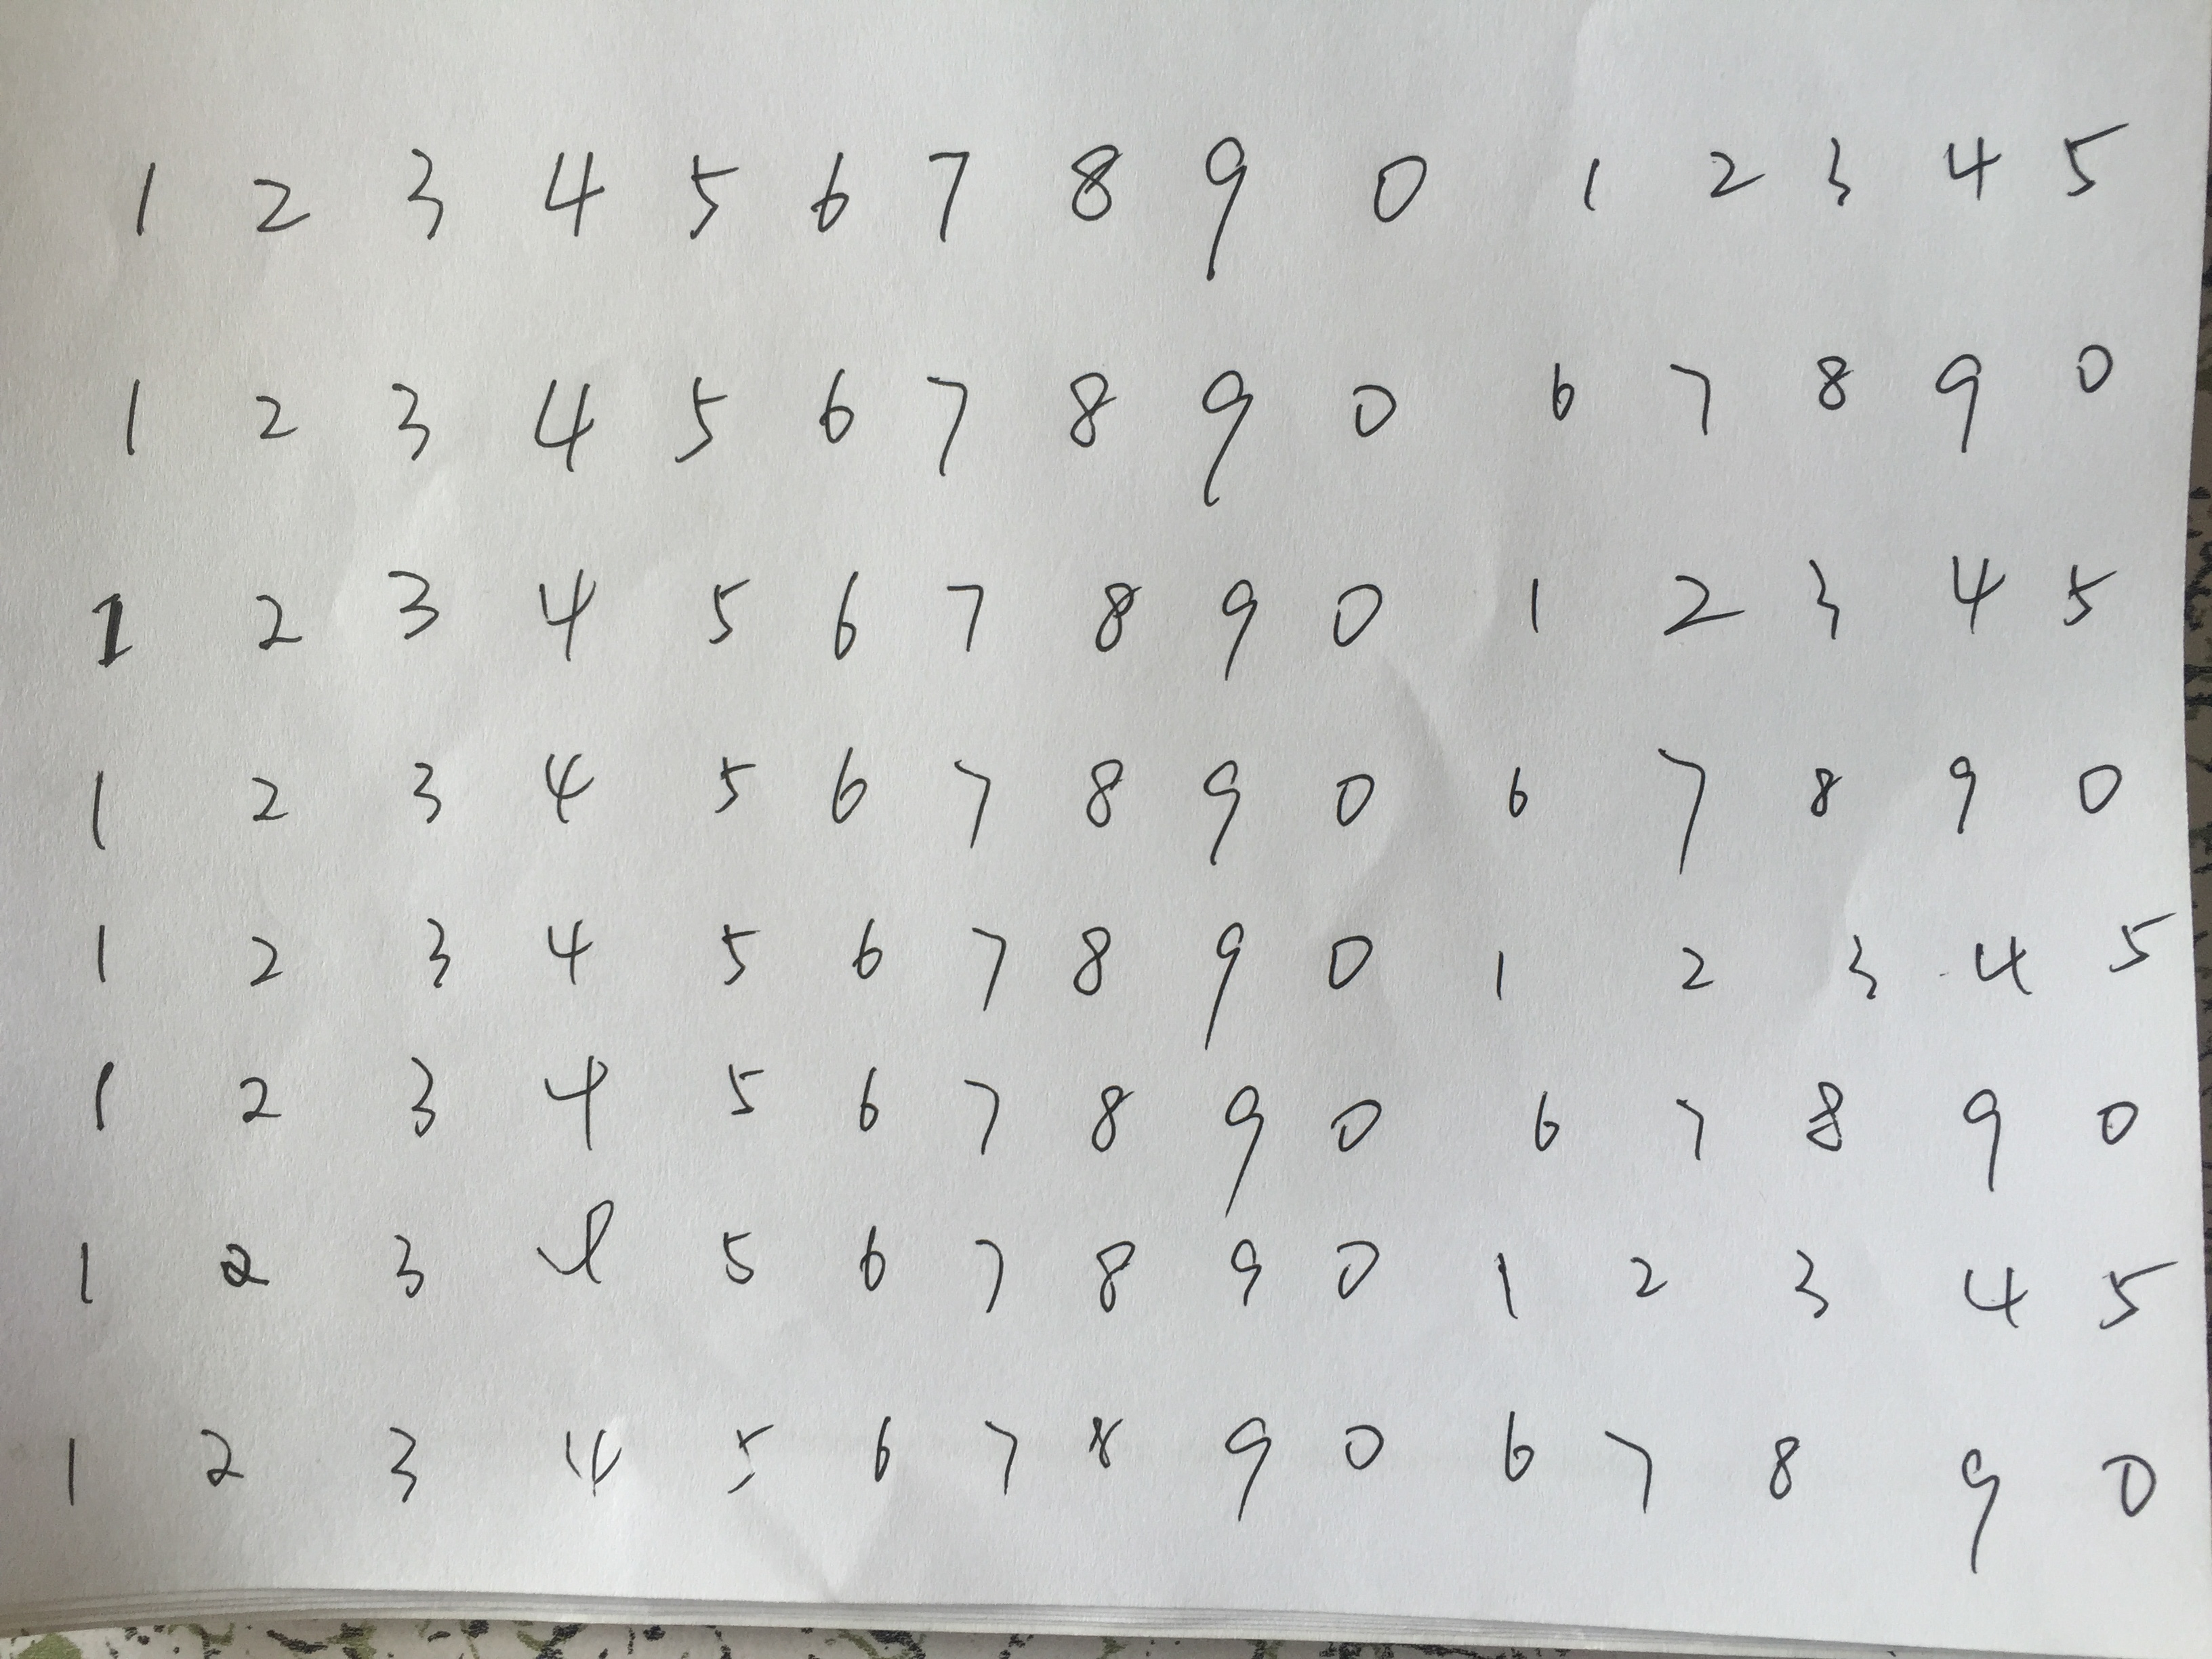 1 2 3 4 5 6 7 8 9 0 1 2 3 4 5
1 2 3 4 5 6 7 8 9 0 6 7 8 9 0
1 2 3 4 5 6 7 8 9 0 1 2 3 4 5
1 2 3 4 5 6 7 8 9 0 6 7 8 9 0
1 2 3 4 5 6 7 8 9 0 1 2 3 4 5
1 2 3 4 5 6 7 8 9 0 6 7 8 9 0
1 2 3 4 5 6 7 8 9 0 1 2 3 4 5
1 2 3 4 5 6 7 8 9 0 6 7 8 9 0